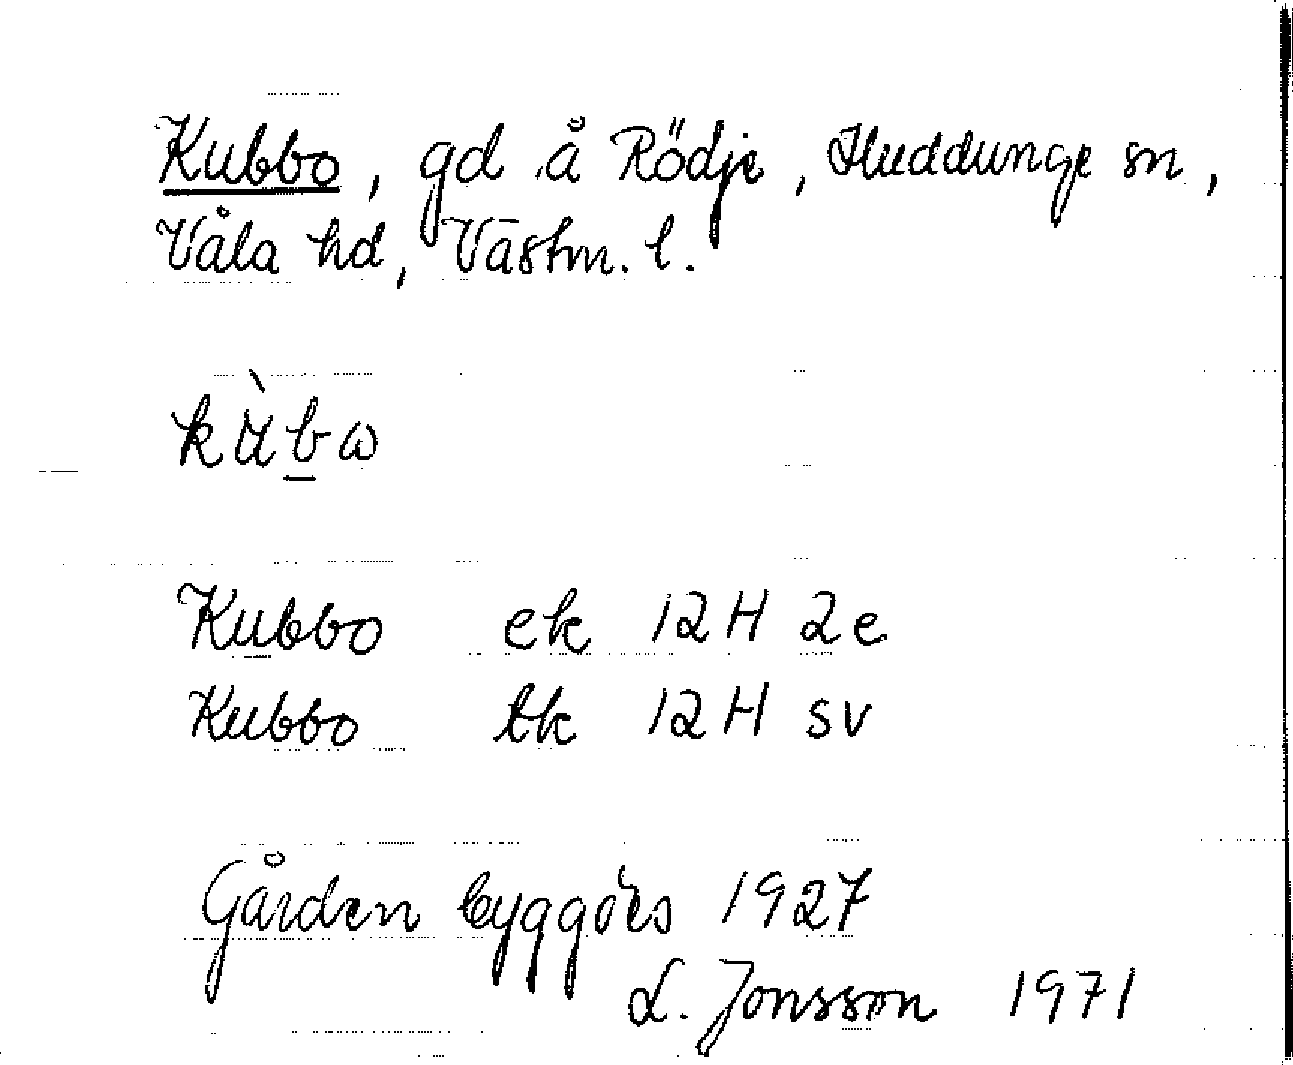 Kubbo, gd å Rödje, Huddunge sn,
Våla hd, Västm. l.
kùbω
Kubbo ek 12H 2e
Kubbo tk 12H sv
Gården byggdes 1927
L. Jonsson 1971